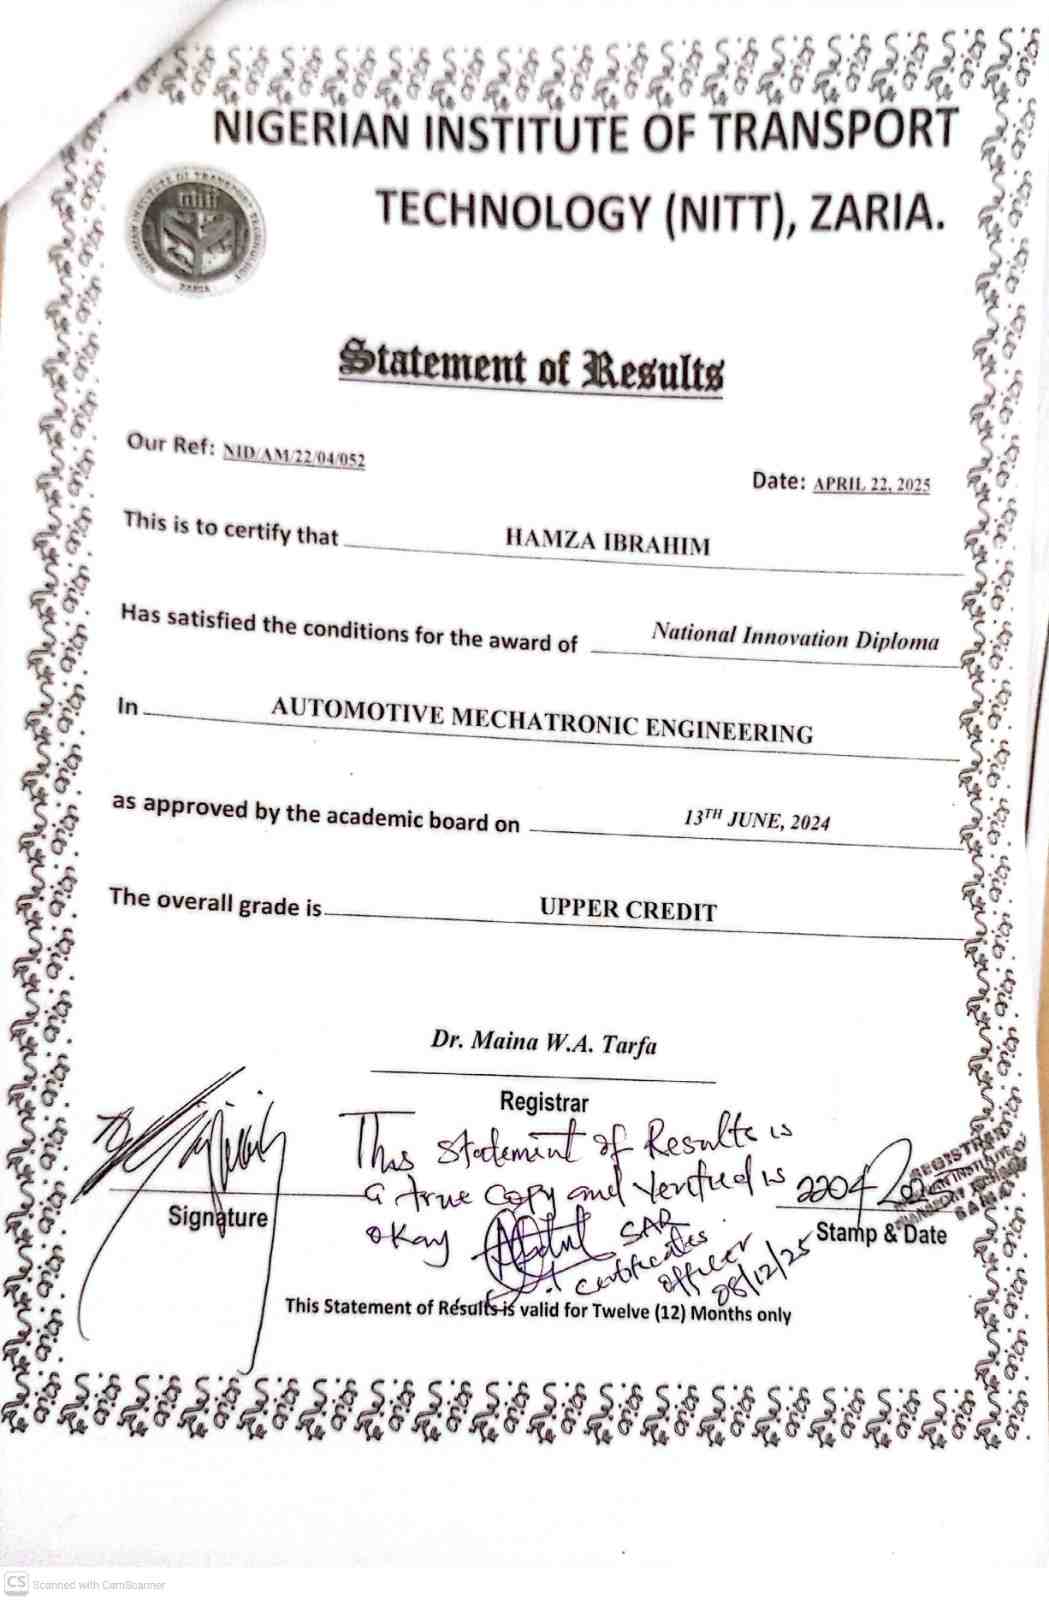 NIGERIAN INSTITUTE OF TRANSPORT
TECHNOLOGY (NITT), ZARIA.
nitt
ZARIA
Statement of Results
Our Ref: NID/AM/22/04/052
Date: APRIL 22, 2025
This is to certify that HAMZA IBRAHIM
Has satisfied the conditions for the award of National Innovation Diploma
In AUTOMOTIVE MECHATRONIC ENGINEERING
as approved by the academic board on 13TH JUNE, 2024
The overall grade is UPPER CREDIT
Dr. Maina W.A. Tarfa
Registrar
This Statement of Results is
a true copy and verified is
okay
SAR
certificates
officer
08/12/25
Signature
2204 2025
Stamp & Date
This Statement of Results is valid for Twelve (12) Months only
CS Scanned with CamScanner